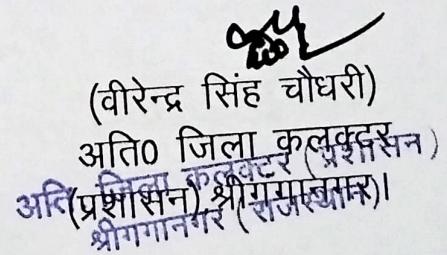 (वीरेन्द्र सिंह चौधरी)
अति0 जिला कलक्टर
(प्रशासन) श्रीगंगानगर।
अति जिला कलक्टर (प्रशासन)
श्रीगंगानगर (राजस्थान)